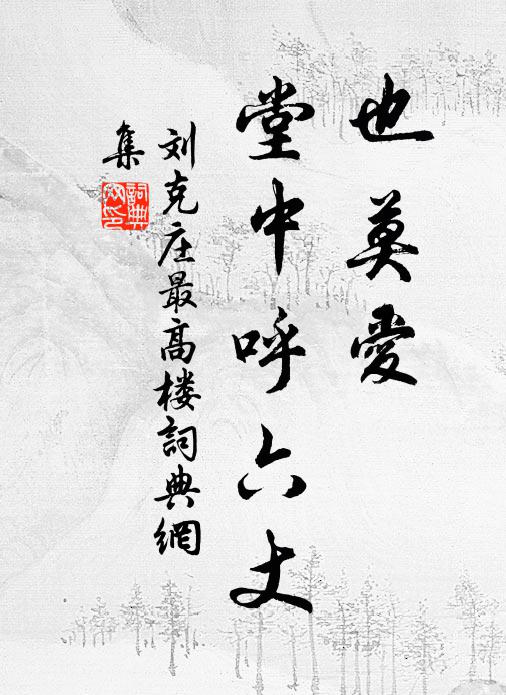 也莫爱
堂中呼六丈
刘克庄最高楼詞典網
集
詞典網印